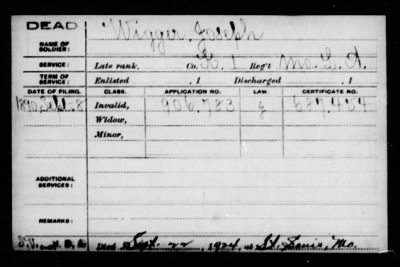 DEAD
NAME OF SOLDIER: Wigger, Joseph
SERVICE: Late rank, Co. K. 1 Reg't Mo. L. A.
TERM OF SERVICE: Enlisted , 1 Discharged , 1
DATE OF FILING. CLASS. APPLICATION NO. LAW. CERTIFICATE NO.
1890, Sept. 8 Invalid, 906,783 g 687,454
Widow,
Minor,
ADDITIONAL SERVICES:
REMARKS:
Died Sept. 22, 1924, at St. Louis, Mo.